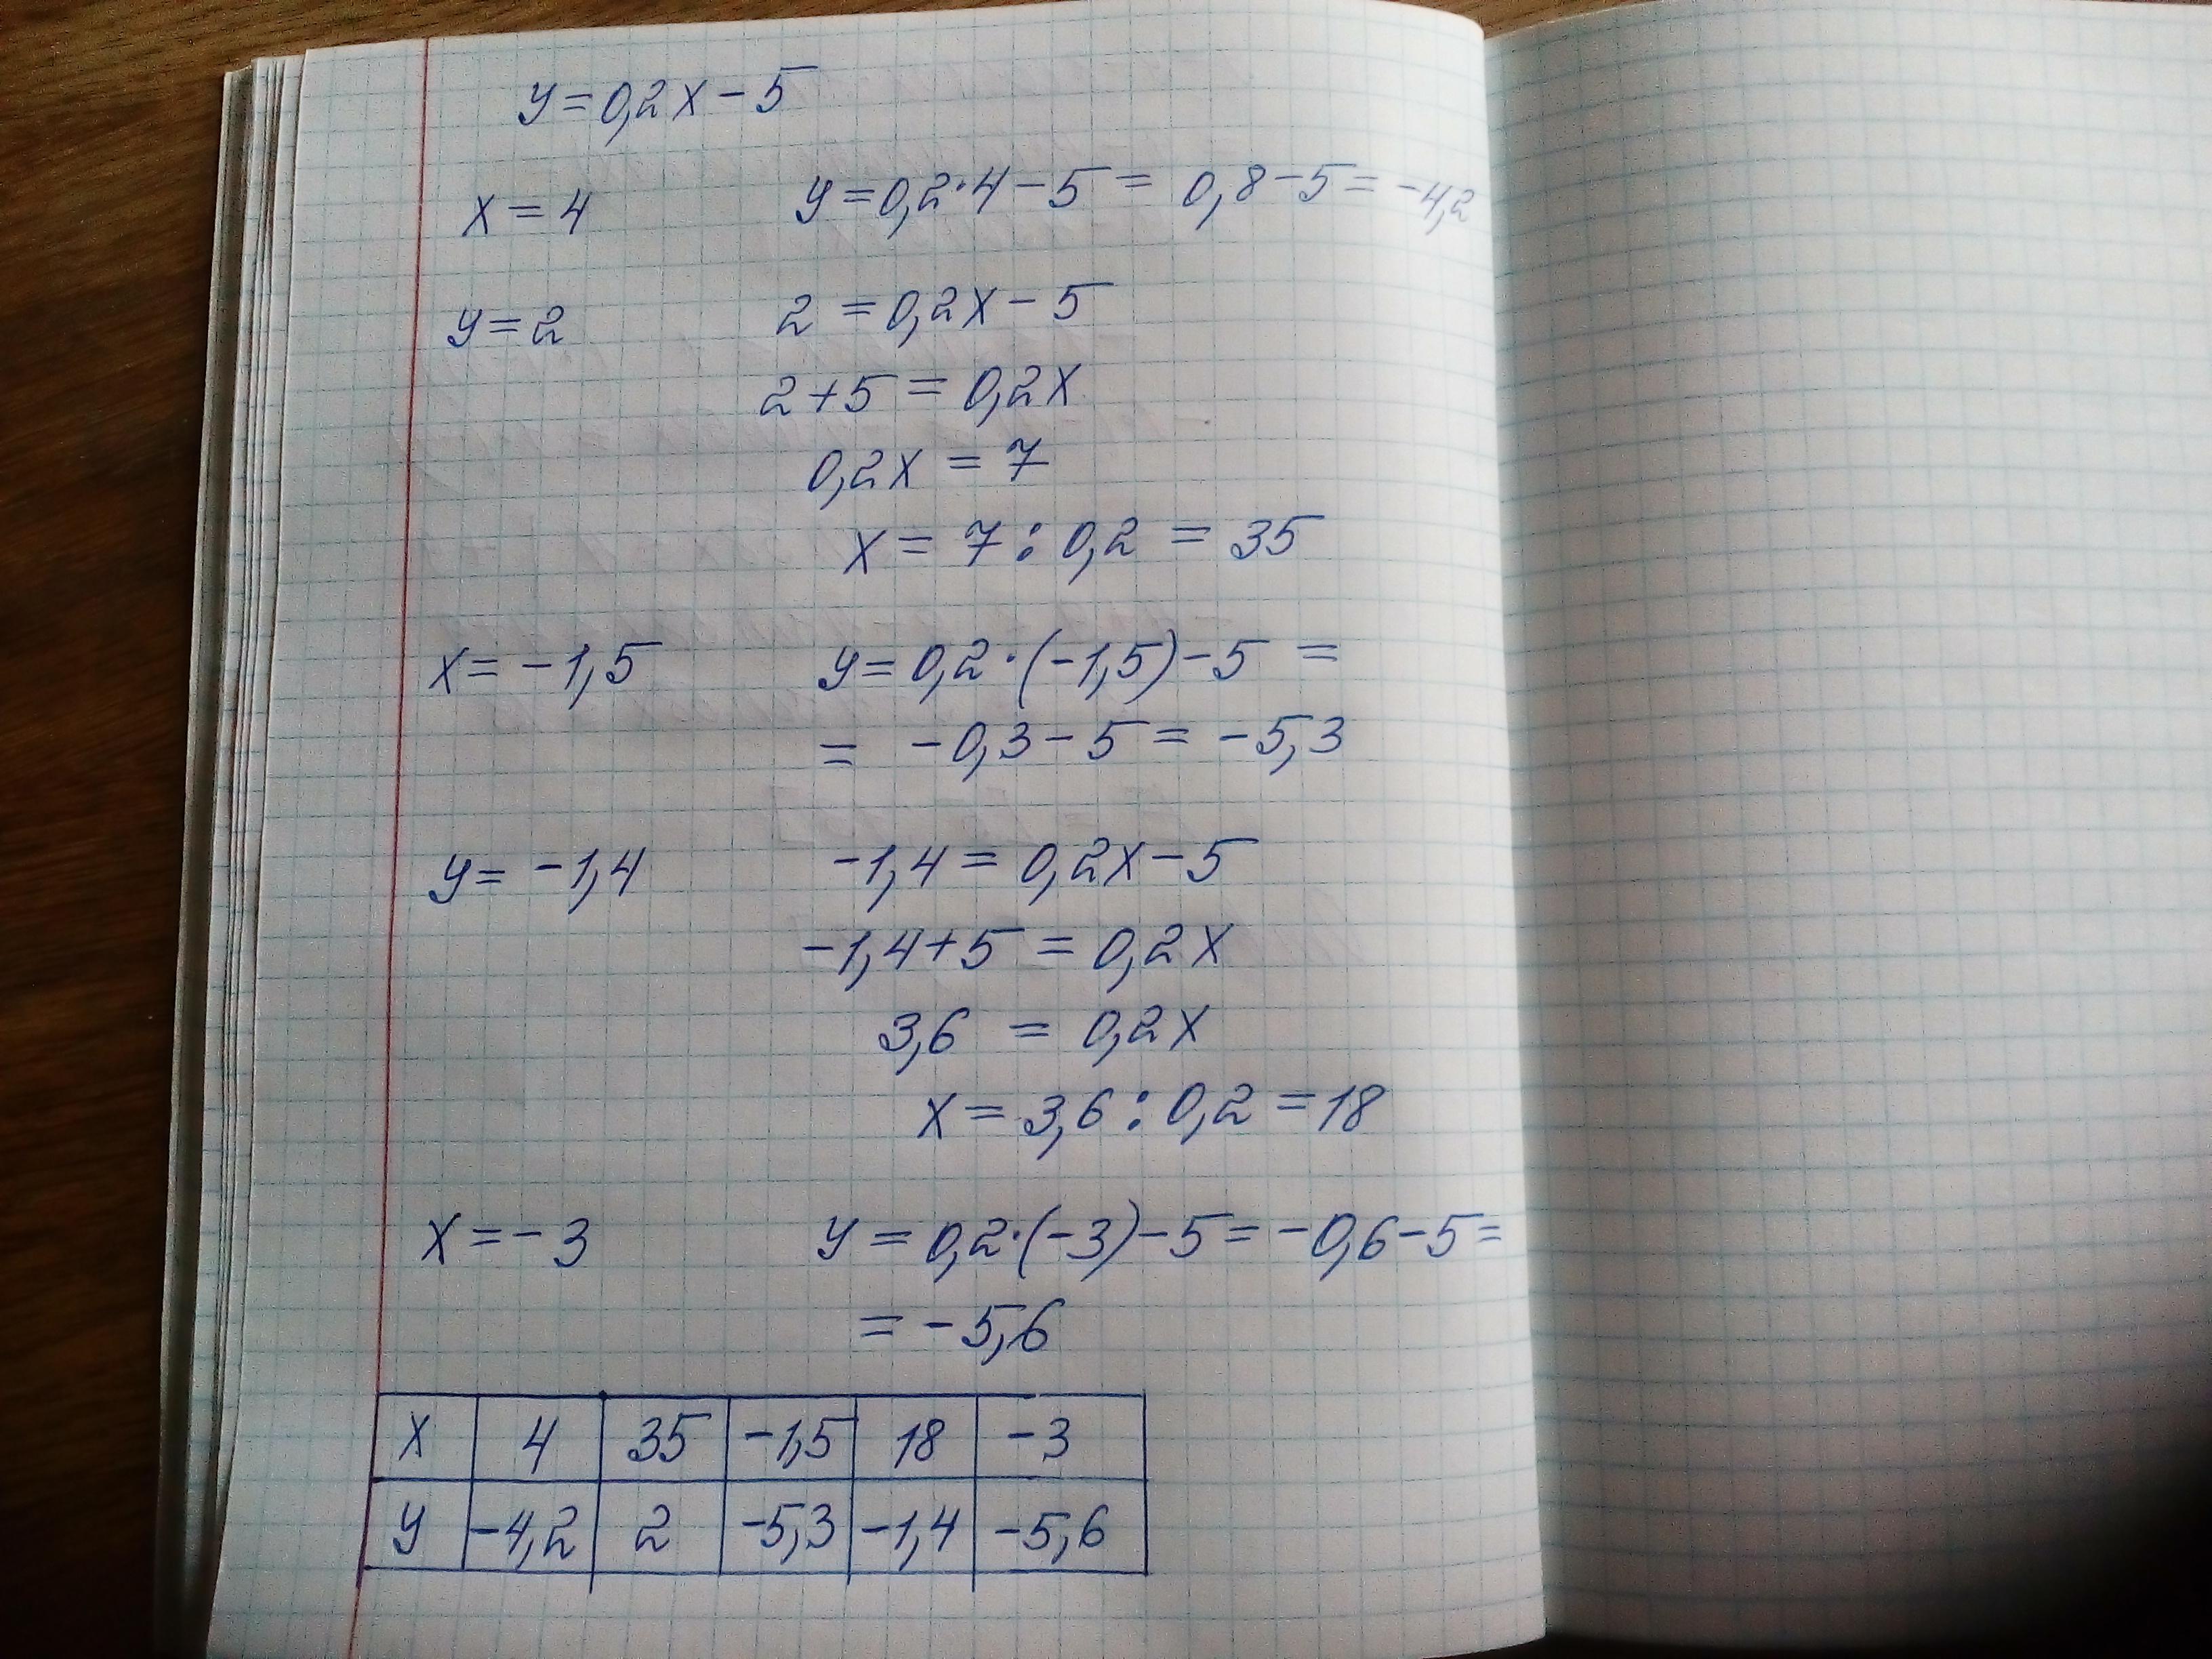 y=0,2x-5
x=4 y=0,2·4-5= 0,8-5=-4,2
y=2 2=0,2x-5
2+5=0,2x
0,2x=7
x=7:0,2=35
x=-1,5 y=0,2·(-1,5)-5=
= -0,3-5=-5,3
y=-1,4 -1,4=0,2x-5
-1,4+5=0,2x
3,6=0,2x
x=3,6:0,2=18
x=-3 y=0,2·(-3)-5=-0,6-5=
=-5,6
x 4 35 -1,5 18 -3
y -4,2 2 -5,3 -1,4 -5,6